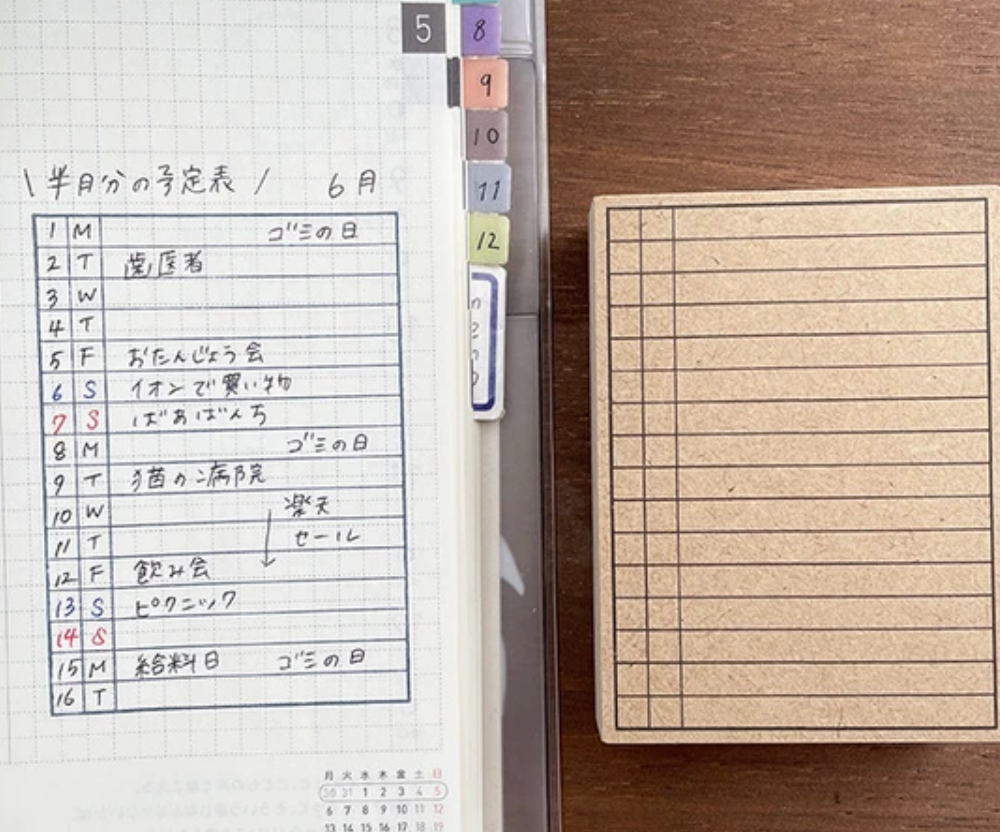 5
8
9
10
11
12
\ 半月分の予定表 / 6月
1 M ゴミの日
2 T 歯医者
3 W
4 T
5 F おたんじょう会
6 S イオンで買い物
7 S ばあばんち
8 M ゴミの日
9 T 猫の病院
10 W 楽天
11 T セール
12 F 飲み会
13 S ピクニック
14 S
15 M 給料日 ゴミの日
16 T
月 火 水 木 金 土 日
30 31 1 2 3 4 5
6 7 8 9 10 11 12
13 14 15 16 17 18 19